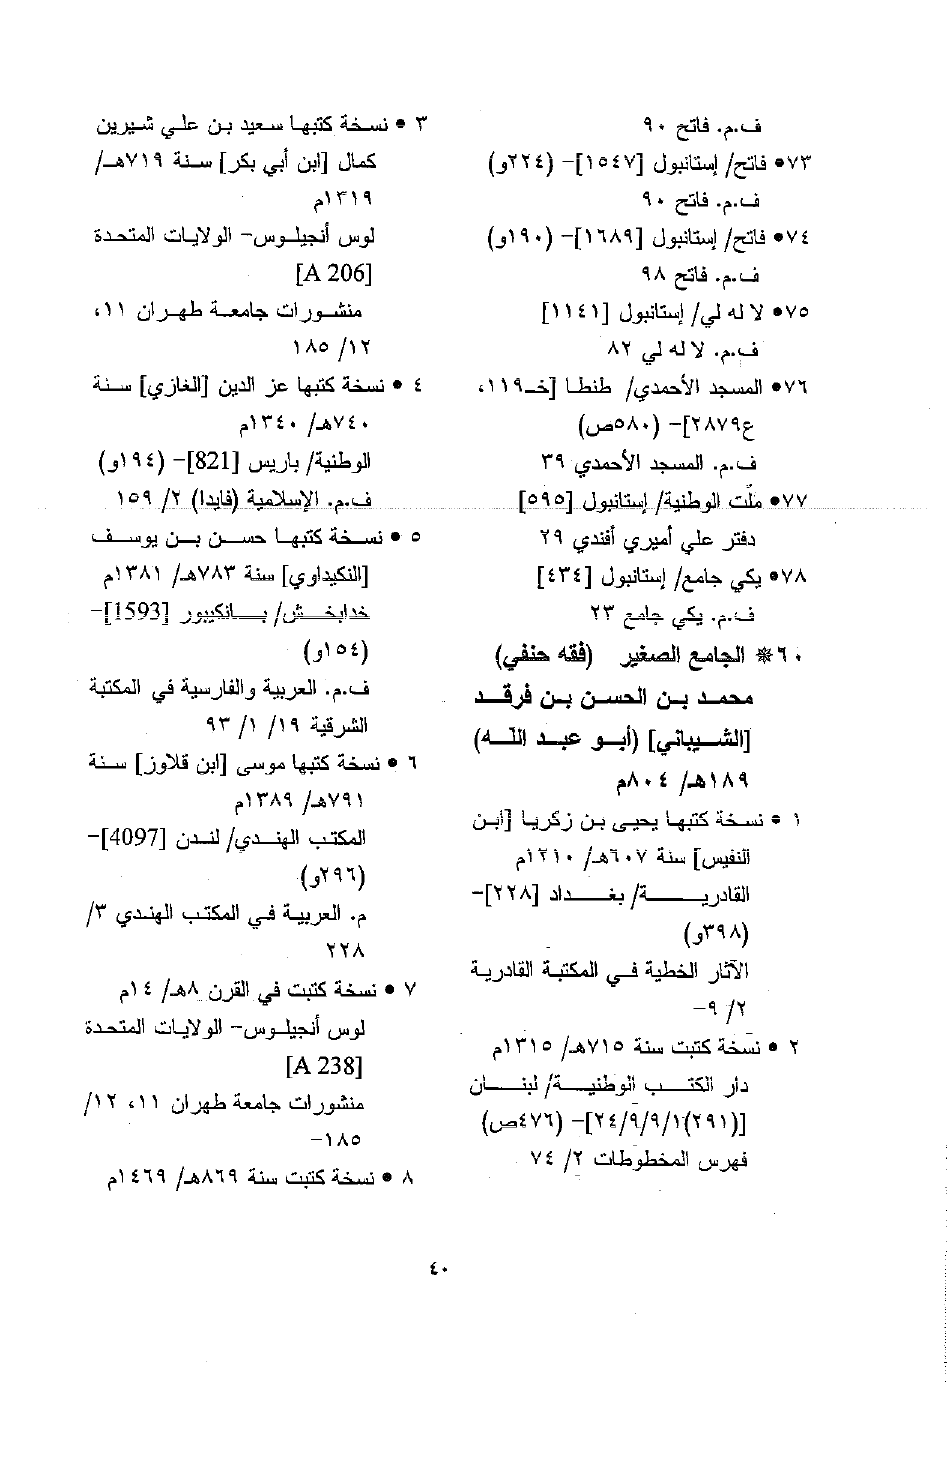 ف.م. فاتح ٩٠
٧٣• فاتح/ إستانبول [١٥٤٧]- (٢٢٤و)
ف.م. فاتح ٩٠
٧٤• فاتح/ إستانبول [١٦٨٩]- (١٩٠و)
ف.م. فاتح ٩٨
٧٥• لا له لي/ إستانبول [١١٤١]
ف.م. لا له لي ٨٢
٧٦• المسجد الأحمدي/ طنطا [خـ١١٩،
ع٢٨٧٩]- (٥٨٠ص)
ف.م. المسجد الأحمدي ٣٩
٧٧• ملّت الوطنية/ إستانبول [٥٩٥]
دفتر علي أميري أفندي ٢٩
٧٨• يكي جامع/ إستانبول [٤٣٤]
ف.م. يكي جامع ٢٣
٦٠* الجامع الصغير (فقه حنفي)
محمد بن الحسن بن فرقد
[الشيباني] (أبو عبد الله)
١٨٩هـ/ ٨٠٤م
١ • نسخة كتبها يحيى بن زكريا [ابن
النفيس] سنة ٦٠٧هـ/ ١٢١٠م
القادرية/ بغداد [٢٢٨]-
(٣٩٨و)
الآثار الخطية في المكتبة القادرية
٢/ ٩-
٢ • نسخة كتبت سنة ٧١٥هـ/ ١٣١٥م
دار الكتب الوطنية/ لبنان
[٢٤/٩/٩/١(٢٩١)]- (٤٧٦ص)
فهرس المخطوطات ٢/ ٧٤
٣ • نسخة كتبها سعيد بن علي شيرين
كمال [ابن أبي بكر] سنة ٧١٩هـ/
١٣١٩م
لوس أنجيلوس- الولايات المتحدة
[A 206]
منشورات جامعة طهران ١١،
١٢/ ١٨٥
٤ • نسخة كتبها عز الدين [الغازي] سنة
٧٤٠هـ/ ١٣٤٠م
الوطنية/ باريس [821]- (١٩٤و)
ف.م. الإسلامية (فايدا) ٢/ ١٥٩
٥ • نسخة كتبها حسن بن يوسف
[النكيداوي] سنة ٧٨٣هـ/ ١٣٨١م
خدابخش/ بانكيبور [1593]-
(١٥٤و)
ف.م. العربية والفارسية في المكتبة
الشرقية ١٩/ ١/ ٩٣
٦ • نسخة كتبها موسى [ابن قلاوز] سنة
٧٩١هـ/ ١٣٨٩م
المكتب الهندي/ لندن [4097]-
(٢٩٦و)
م. العربية في المكتب الهندي ٣/
٢٢٨
٧ • نسخة كتبت في القرن ٨هـ/ ١٤م
لوس أنجيلوس- الولايات المتحدة
[A 238]
منشورات جامعة طهران ١١، ١٢/
١٨٥-
٨ • نسخة كتبت سنة ٨٦٩هـ/ ١٤٦٩م
٤٠